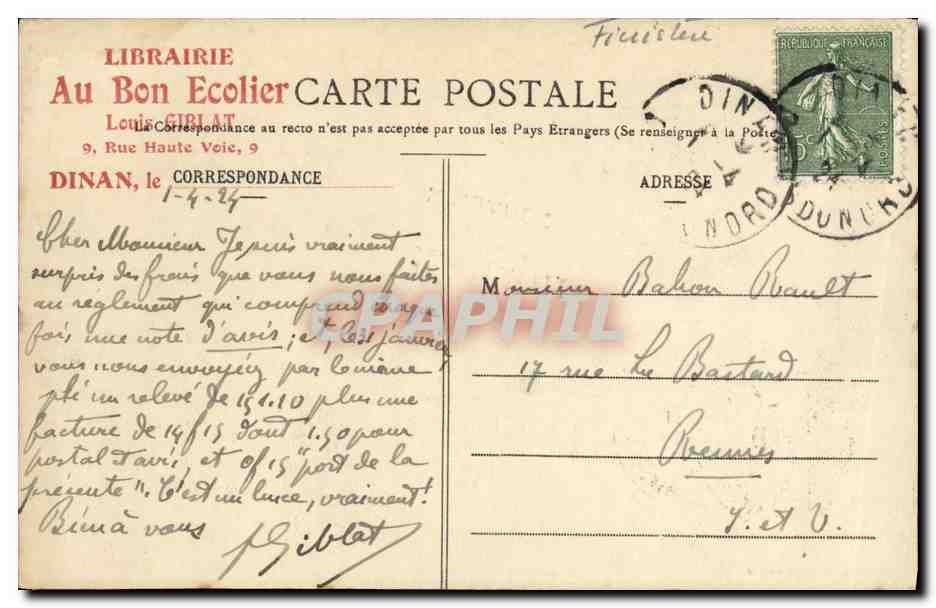 Finistère
LIBRAIRIE
Au Bon Ecolier
Louis GIBLAT
9, Rue Haute Voie, 9
DINAN, le
CARTE POSTALE
La Correspondance au recto n'est pas acceptée par tous les Pays Étrangers (Se renseigner à la Poste
CORRESPONDANCE
ADRESSE
1-4-24
REPUBLIQUE FRANÇAISE
15c POSTES
DINAN
DU NORD
Cher Monsieur Je suis vraiment
surpris des frais que vous nous faites
au règlement qui comprend chaque
fois une note d'avis, et, les
vous nous envoyez par le même
pli un relevé de 151.10 plus une
facture de 14f15 dont 1.50 pour
postal et avis, et 0f15 "port de la
présente". C'est un luxe, vraiment!
Bien à vous
Giblat
Monsieur Bahon Rault
17 rue Le Bastard
Rennes
I. et V.
CPAPHIL